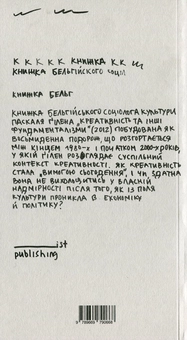 К К К К К КНИЖКА К К Щ
КНИЖКА БЕЛЬГІЙСЬКОГО СОЦІОЛ
КНИЖКА БЕЛЬГ
КНИЖКА БЕЛЬГІЙСЬКОГО СОЦІОЛОГА КУЛЬТУРИ
ПАСКАЛЯ ГІЛЕНА „КРЕАТИВНІСТЬ ТА ІНШІ
ФУНДАМЕНТАЛІЗМИ” (2012) ПОБУДОВАНА ЯК
ВОСЬМИДЕННА ПОДОРОЖ, ЩО РОЗГОРТАЄТЬСЯ
МІЖ КІНЦЕМ 1980-Х І ПОЧАТКОМ 2000-Х РОКІВ,
У ЯКІЙ ГІЛЕН РОЗГЛЯДАЄ СУСПІЛЬНИЙ
КОНТЕКСТ КРЕАТИВНОСТІ. ЯК КРЕАТИВНІСТЬ
СТАЛА „ВИМОГОЮ СЬОГОДЕННЯ”, І ЧИ ЗДАТНА
ВОНА НЕ ВИХОЛОСТИТИСЬ У ВЛАСНІЙ
НАДМІРНОСТІ ПІСЛЯ ТОГО, ЯК ІЗ ПОЛЯ
КУЛЬТУРИ ПРОНИКЛА В ЕКОНОМІКУ
Й ПОЛІТИКУ?
ist
publishing